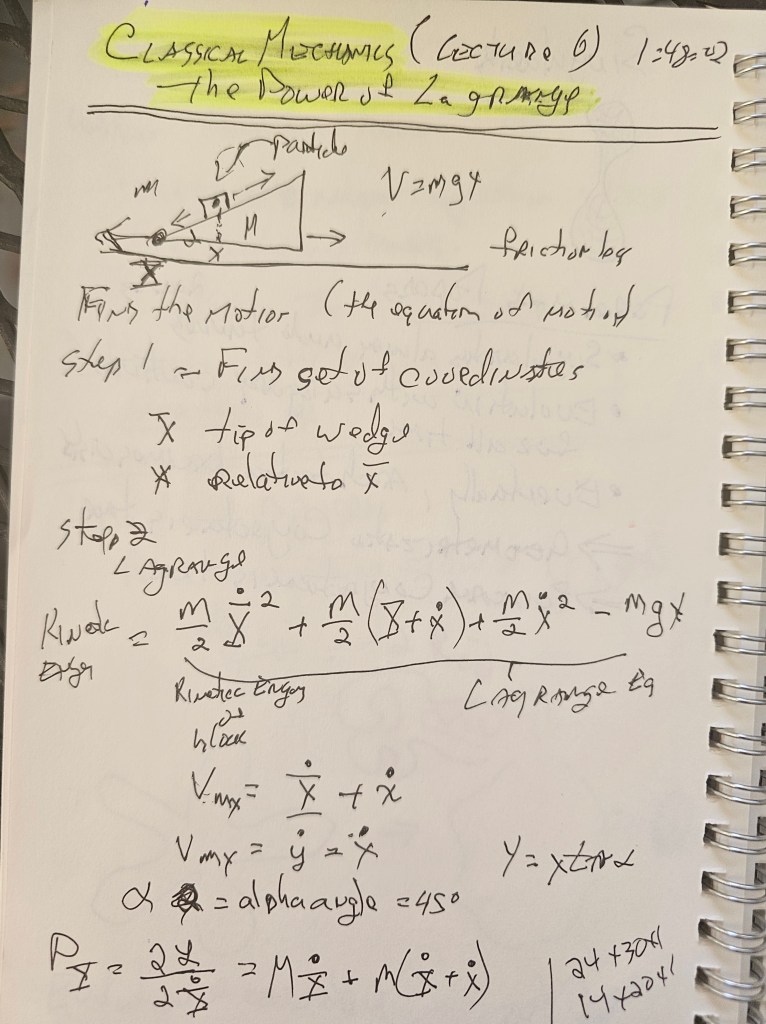 CLASSICAL MECHANICS (LECTURE 6) 1:48:02
the Power of Lagrange
Particle
m
V=mgx
M
α
x
X
frictionless
Find the Motion (the equation of motion)
Step 1 = Find set of coordinates
X tip of wedge
x Relative to X
Step 2
LAGRANGE
Kinetic Energy = M/2 Ẋ² + m/2 (Ẋ+ẋ) + m/2 ẋ² - mgx
Kinetic Energy of block
LAGRANGE Eq
Vmx = Ẋ + ẋ
Vmx = ẏ = ẋ
Y = x tan α
α = alpha angle = 45°
P_X = ∂L/∂Ẋ = MẊ + m(Ẋ+ẋ)